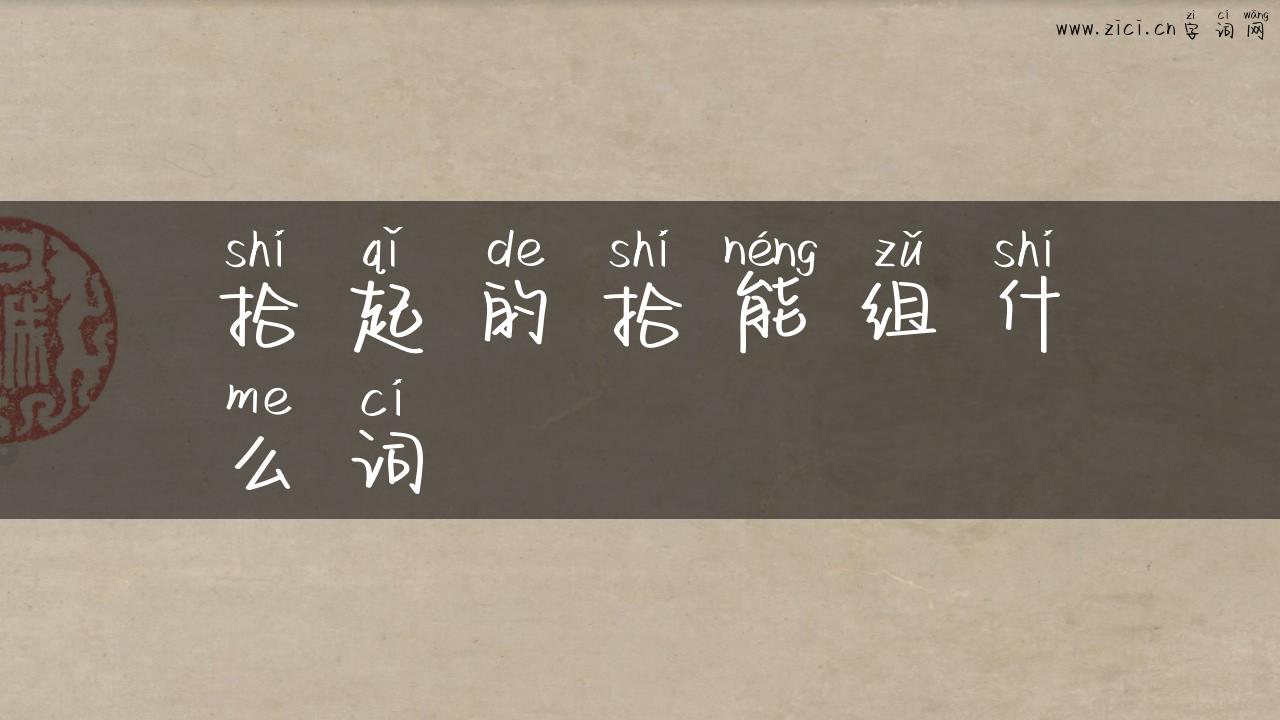 zì cí wǎng
www.zici.cn 字词网
shí qǐ de shí néng zǔ shí
拾起的拾能组什
me cí
么词